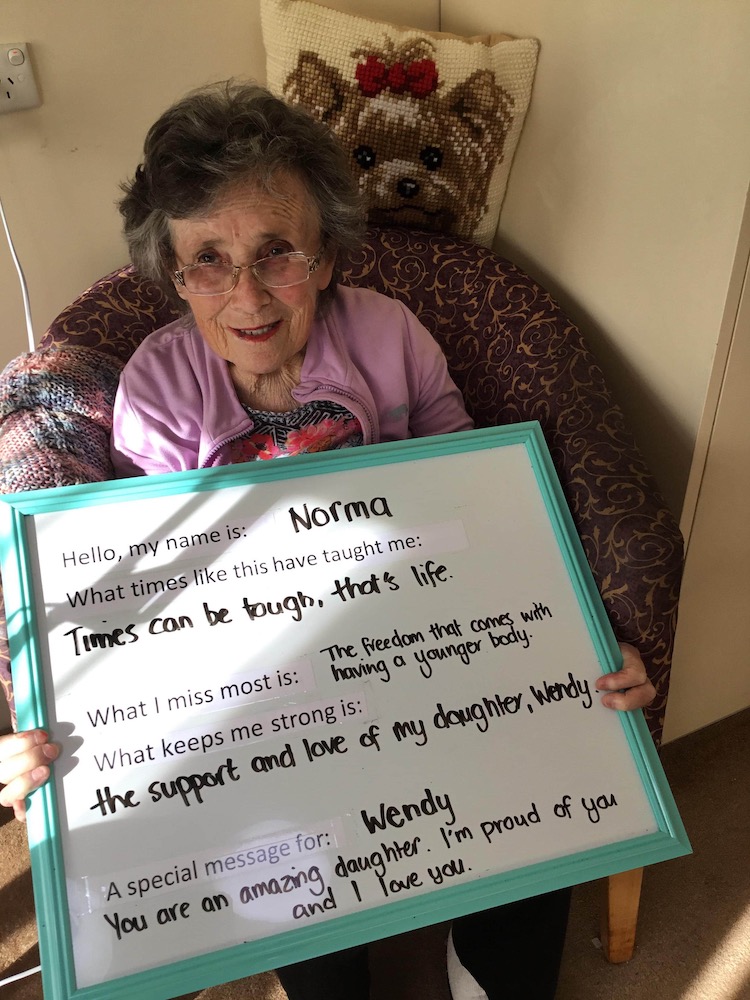 Hello, my name is: Norma
What times like this have taught me:
Times can be tough, that's life.
What I miss most is: The freedom that comes with
having a younger body.
What keeps me strong is:
the support and love of my daughter, Wendy.
A special message for: Wendy
You are an amazing daughter. I'm proud of you
and I love you.